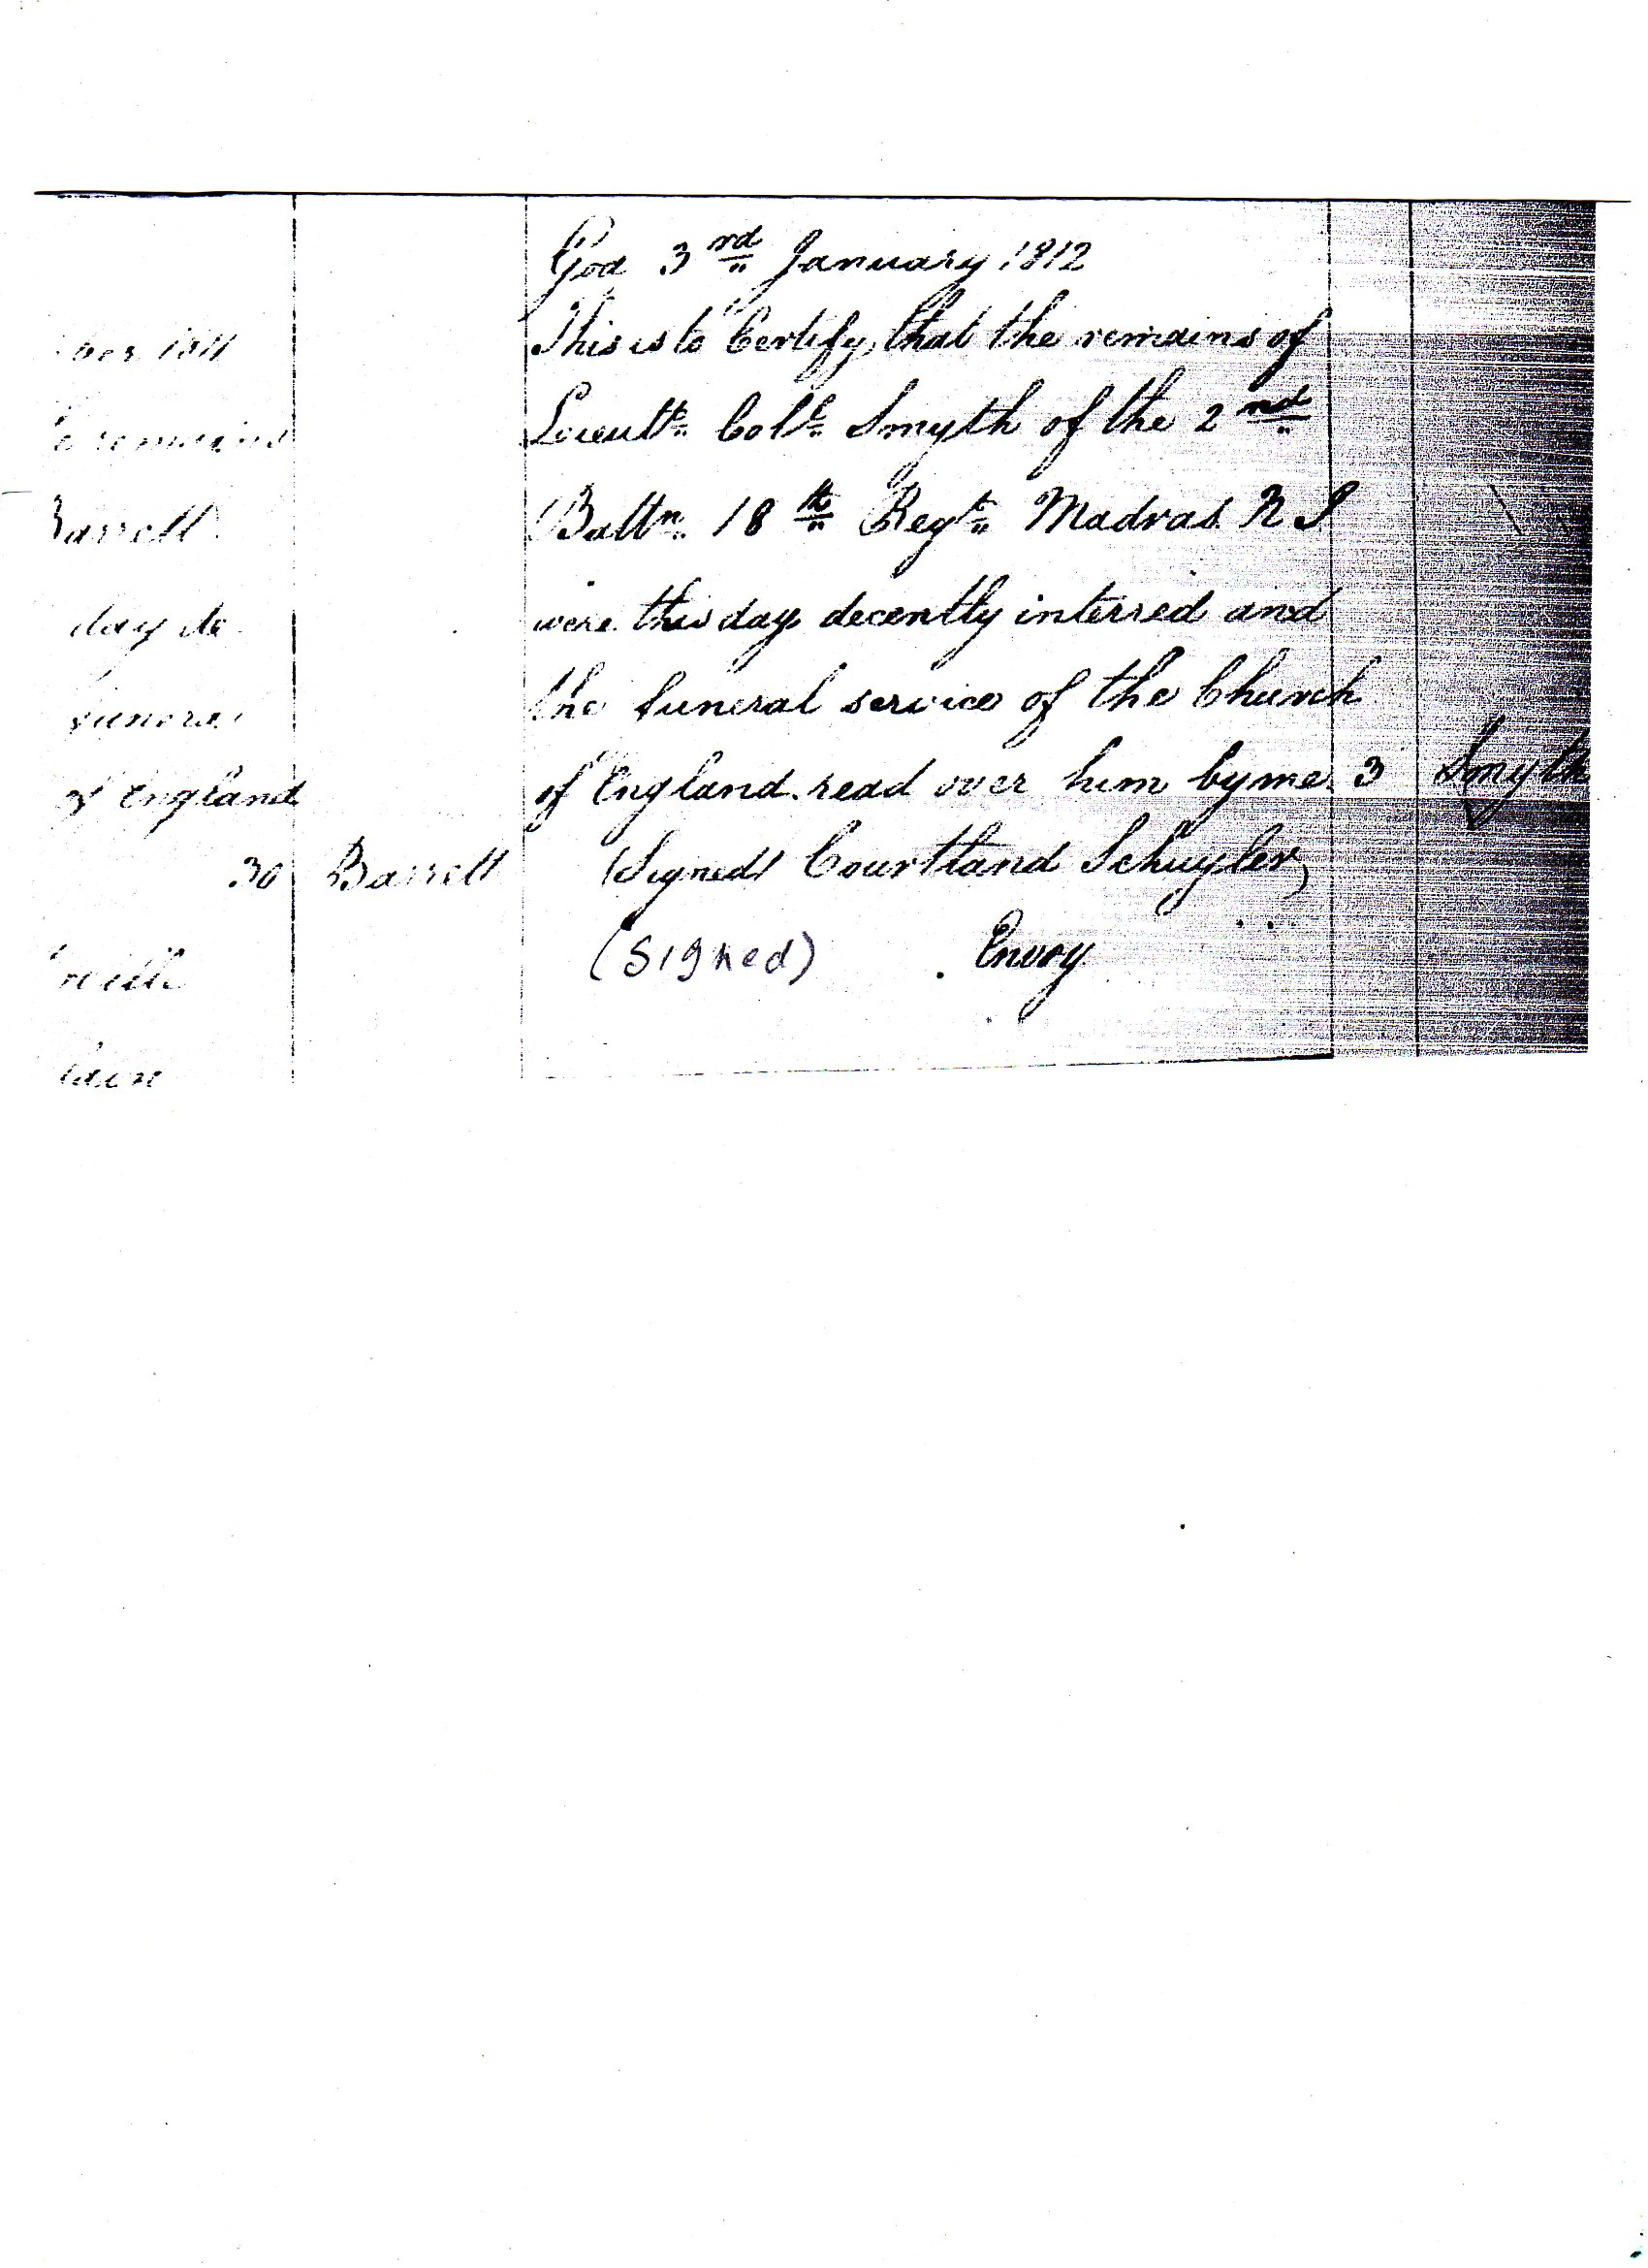 God 3rd January 1812
This is to Certify, that the remains of
Lieutt. Colt. Smyth of the 2nd
Battn. 18th Regt. Madras N I
were this day decently interred and
the funeral service of the Church
of England read over him by me 3 Smyth
(Signed) Courtland Schuyler,
(Signed) Envoy
1811
remains
Barrett
day de
funeral
of England
30 Barrett